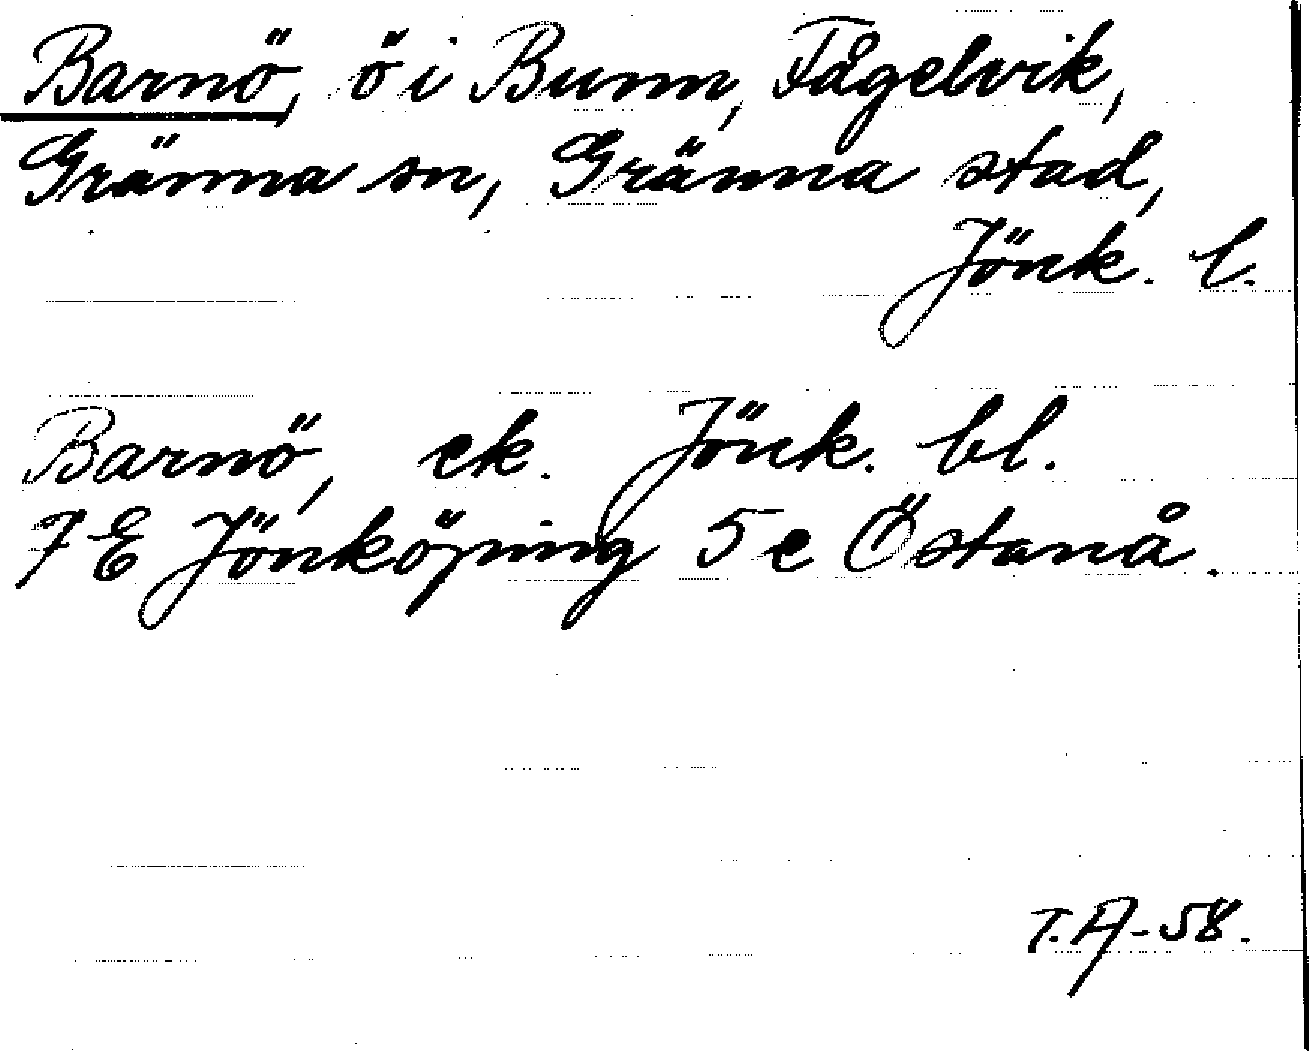 Barnö, ö i Bunn, Fågelvik,
Gränna sn, Gränna stad,
Jönk. l.
Barnö, ek. Jönk. bl.
7 E Jönköping 5 e Östanå.
T.A-58.